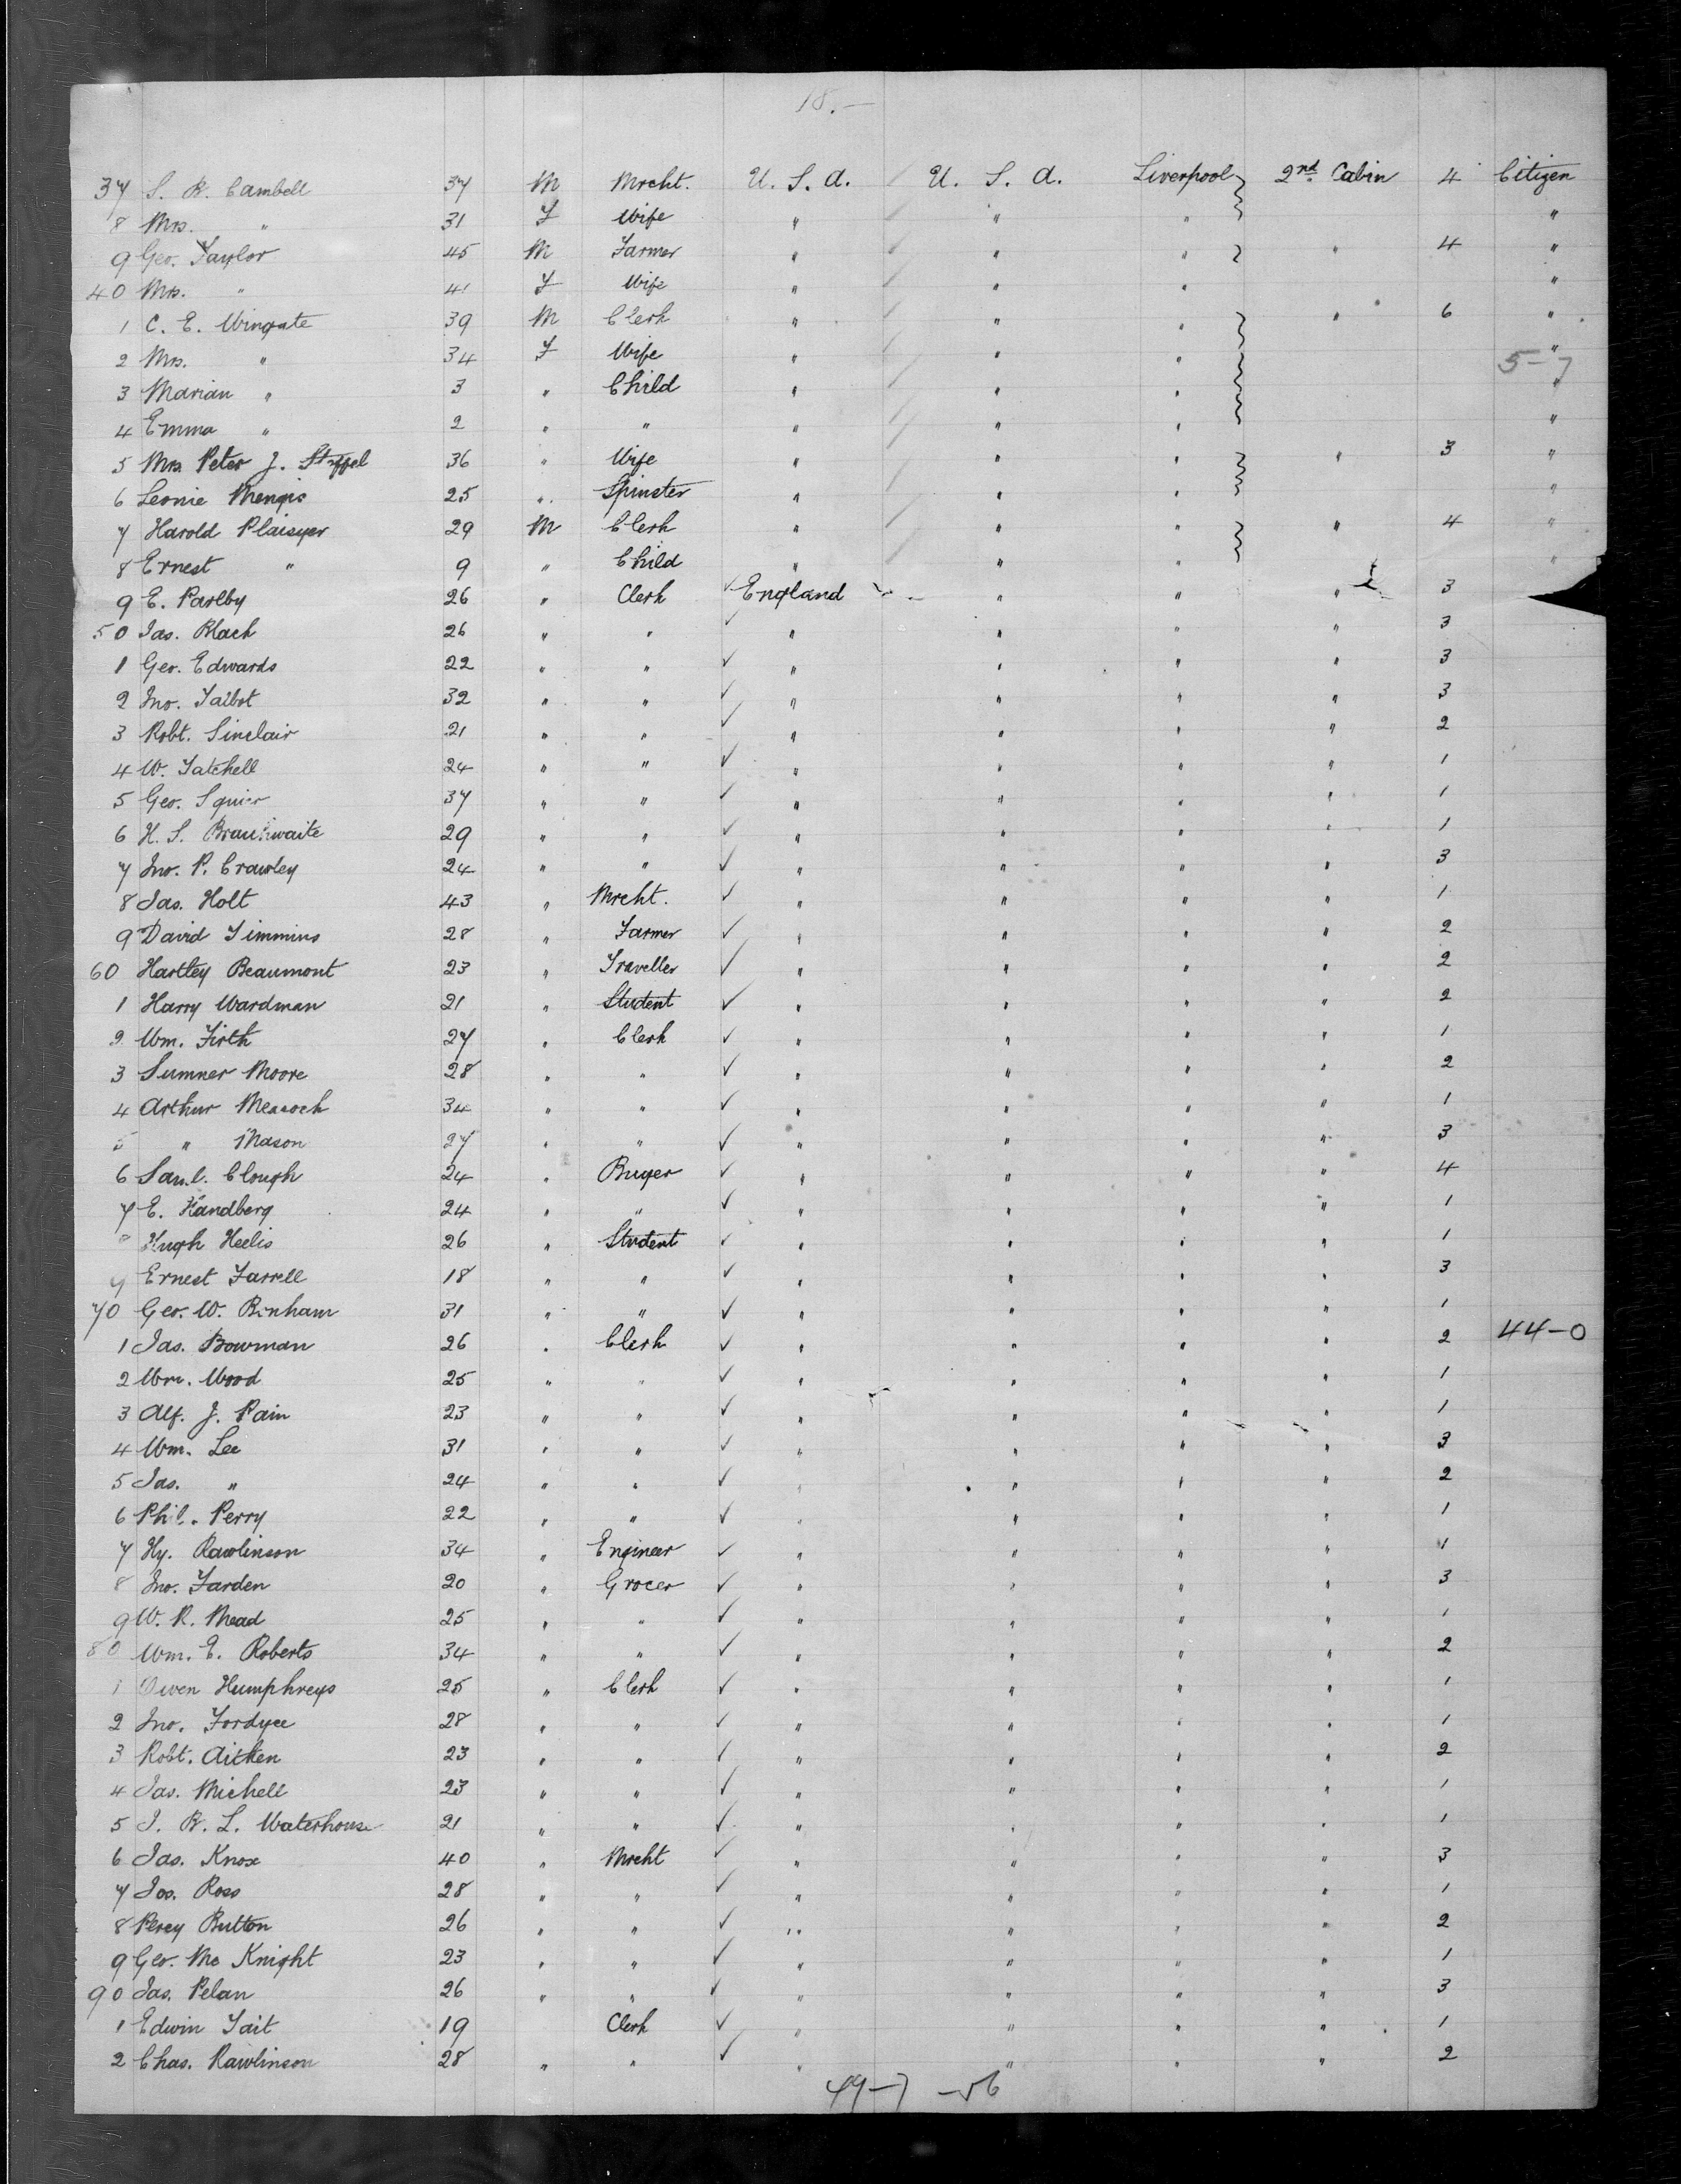 18.—
37 S. R. Cambell 37 M Mrcht. U. S. A. U. S. A. Liverpool 2nd Cabin 4 Citizen
8 Mrs. " 31 F Wife " " " "
9 Geo. Taylor 45 M Farmer " " " " 4 "
40 Mrs. " 41 F Wife " " " "
1 C. E. Wingate 39 M Clerk " " " " 6 "
2 Mrs. " 34 F Wife " " " "
5-7
3 Marian " 3 " Child " " " "
4 Emma " 2 " " " " " "
5 Mrs Peter J. 36 " Wife " " " " 3 "
6 Leonie Mengis 25 " Spinster " " " "
7 Harold Plaisyer 29 M Clerk " " " " 4 "
8 Ernest " 9 " Child " " " "
9 E. Parlby 26 " Clerk England " " " 3
50 Jas. Black 26 " " " " " " 3
1 Geo. Edwards 22 " " " " " " 3
2 Jno. Talbot 32 " " " " " " 3
3 Robt. Sinclair 21 " " " " " " 2
4 W. Tatchell 24 " " " " " " 1
5 Geo. Squier 37 " " " " " " 1
6 H. S. Brauthwaite 29 " " " " " " 1
7 Jno. P. Crawley 24 " " " " " " 3
8 Jas. Holt 43 " Mrcht. " " " " 1
9 David Timmins 28 " Farmer " " " " 2
60 Hartley Beaumont 23 " Traveller " " " " 2
1 Harry Wardman 21 " Student " " " " 2
2 Wm. Firth 27 " Clerk " " " " 1
3 Sumner Moore 28 " " " " " " 2
4 Arthur Meacock 34 " " " " " " 1
5 " Mason 27 " " " " " " 3
6 Saml. Clough 24 " Buyer " " " " 4
7 E. Handberg 24 " " " " " " 1
8 Hugh Heelis 26 " Student " " " " 1
9 Ernest Farrell 18 " " " " " " 3
70 Geo. W. Binham 31 " " " " " " 1
1 Jas. Bowman 26 " Clerk " " " " 2 44-0
2 Wm. Wood 25 " " " " " " 1
3 Alf. J. Pain 23 " " " " " " 1
4 Wm. Lee 31 " " " " " " 3
5 Jas. " 24 " " " " " " 2
6 Phil. Perry 22 " " " " " " 1
7 Hy. Rawlinson 34 " Engineer " " " " 1
8 Jno. Farden 20 " Grocer " " " " 3
9 W. R. Mead 25 " " " " " " 1
80 Wm. E. Roberts 34 " " " " " " 2
1 Owen Humphreys 25 " Clerk " " " " 1
2 Jno. Fordyce 28 " " " " " " 1
3 Robt. Aitken 23 " " " " " " 2
4 Jas. Michell 23 " " " " " " 1
5 J. R. L. Waterhouse 21 " " " " " " 1
6 Jas. Knox 40 " Mrcht " " " " 3
7 Jos. Ross 28 " " " " " " 1
8 Percy Button 26 " " " " " " 2
9 Geo. Mc Knight 23 " " " " " " 1
90 Jas. Pelan 26 " " " " " " 3
1 Edwin Tait 19 Clerk " " " " 1
2 Chas. Rawlinson 28 " " " " " " 2
49-7 -56